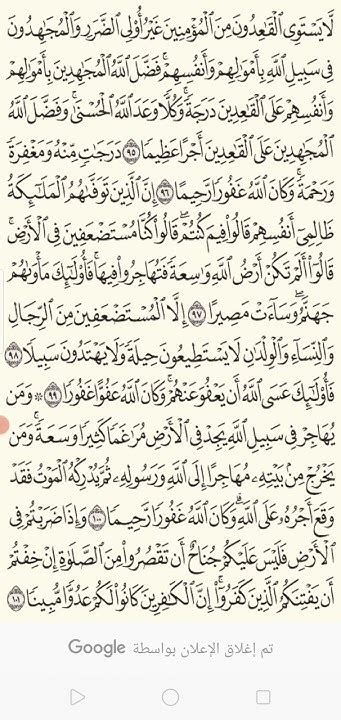 لَّا يَسْتَوِى ٱلْقَٰعِدُونَ مِنَ ٱلْمُؤْمِنِينَ غَيْرُ أُو۟لِى ٱلضَّرَرِ وَٱلْمُجَٰهِدُونَ
فِى سَبِيلِ ٱللَّهِ بِأَمْوَٰلِهِمْ وَأَنفُسِهِمْ ۚ فَضَّلَ ٱللَّهُ ٱلْمُجَٰهِدِينَ بِأَمْوَٰلِهِمْ
وَأَنفُسِهِمْ عَلَى ٱلْقَٰعِدِينَ دَرَجَةً ۚ وَكُلًّا وَعَدَ ٱللَّهُ ٱلْحُسْنَىٰ ۚ وَفَضَّلَ ٱللَّهُ
ٱلْمُجَٰهِدِينَ عَلَى ٱلْقَٰعِدِينَ أَجْرًا عَظِيمًا ٩٥ دَرَجَٰتٍ مِّنْهُ وَمَغْفِرَةً
وَرَحْمَةً ۚ وَكَانَ ٱللَّهُ غَفُورًا رَّحِيمًا ٩٦ إِنَّ ٱلَّذِينَ تَوَفَّىٰهُمُ ٱلْمَلَٰٓئِكَةُ
ظَالِمِىٓ أَنفُسِهِمْ قَالُوا۟ فِيمَ كُنتُمْ ۖ قَالُوا۟ كُنَّا مُسْتَضْعَفِينَ فِى ٱلْأَرْضِ ۚ
قَالُوٓا۟ أَلَمْ تَكُنْ أَرْضُ ٱللَّهِ وَٰسِعَةً فَتُهَاجِرُوا۟ فِيهَا ۚ فَأُو۟لَٰٓئِكَ مَأْوَىٰهُمْ
جَهَنَّمُ ۖ وَسَآءَتْ مَصِيرًا ٩٧ إِلَّا ٱلْمُسْتَضْعَفِينَ مِنَ ٱلرِّجَالِ
وَٱلنِّسَآءِ وَٱلْوِلْدَٰنِ لَا يَسْتَطِيعُونَ حِيلَةً وَلَا يَهْتَدُونَ سَبِيلًا ٩٨
فَأُو۟لَٰٓئِكَ عَسَى ٱللَّهُ أَن يَعْفُوَ عَنْهُمْ ۚ وَكَانَ ٱللَّهُ عَفُوًّا غَفُورًا ٩٩ ۞ وَمَن
يُهَاجِرْ فِى سَبِيلِ ٱللَّهِ يَجِدْ فِى ٱلْأَرْضِ مُرَٰغَمًا كَثِيرًا وَسَعَةً ۚ وَمَن
يَخْرُجْ مِنۢ بَيْتِهِۦ مُهَاجِرًا إِلَى ٱللَّهِ وَرَسُولِهِۦ ثُمَّ يُدْرِكْهُ ٱلْمَوْتُ فَقَدْ
وَقَعَ أَجْرُهُۥ عَلَى ٱللَّهِ ۗ وَكَانَ ٱللَّهُ غَفُورًا رَّحِيمًا ١٠٠ وَإِذَا ضَرَبْتُمْ فِى
ٱلْأَرْضِ فَلَيْسَ عَلَيْكُمْ جُنَاحٌ أَن تَقْصُرُوا۟ مِنَ ٱلصَّلَوٰةِ إِنْ خِفْتُمْ
أَن يَفْتِنَكُمُ ٱلَّذِينَ كَفَرُوٓا۟ ۚ إِنَّ ٱلْكَٰفِرِينَ كَانُوا۟ لَكُمْ عَدُوًّا مُّبِينًا ١٠١
تم إغلاق الإعلان بواسطة Google